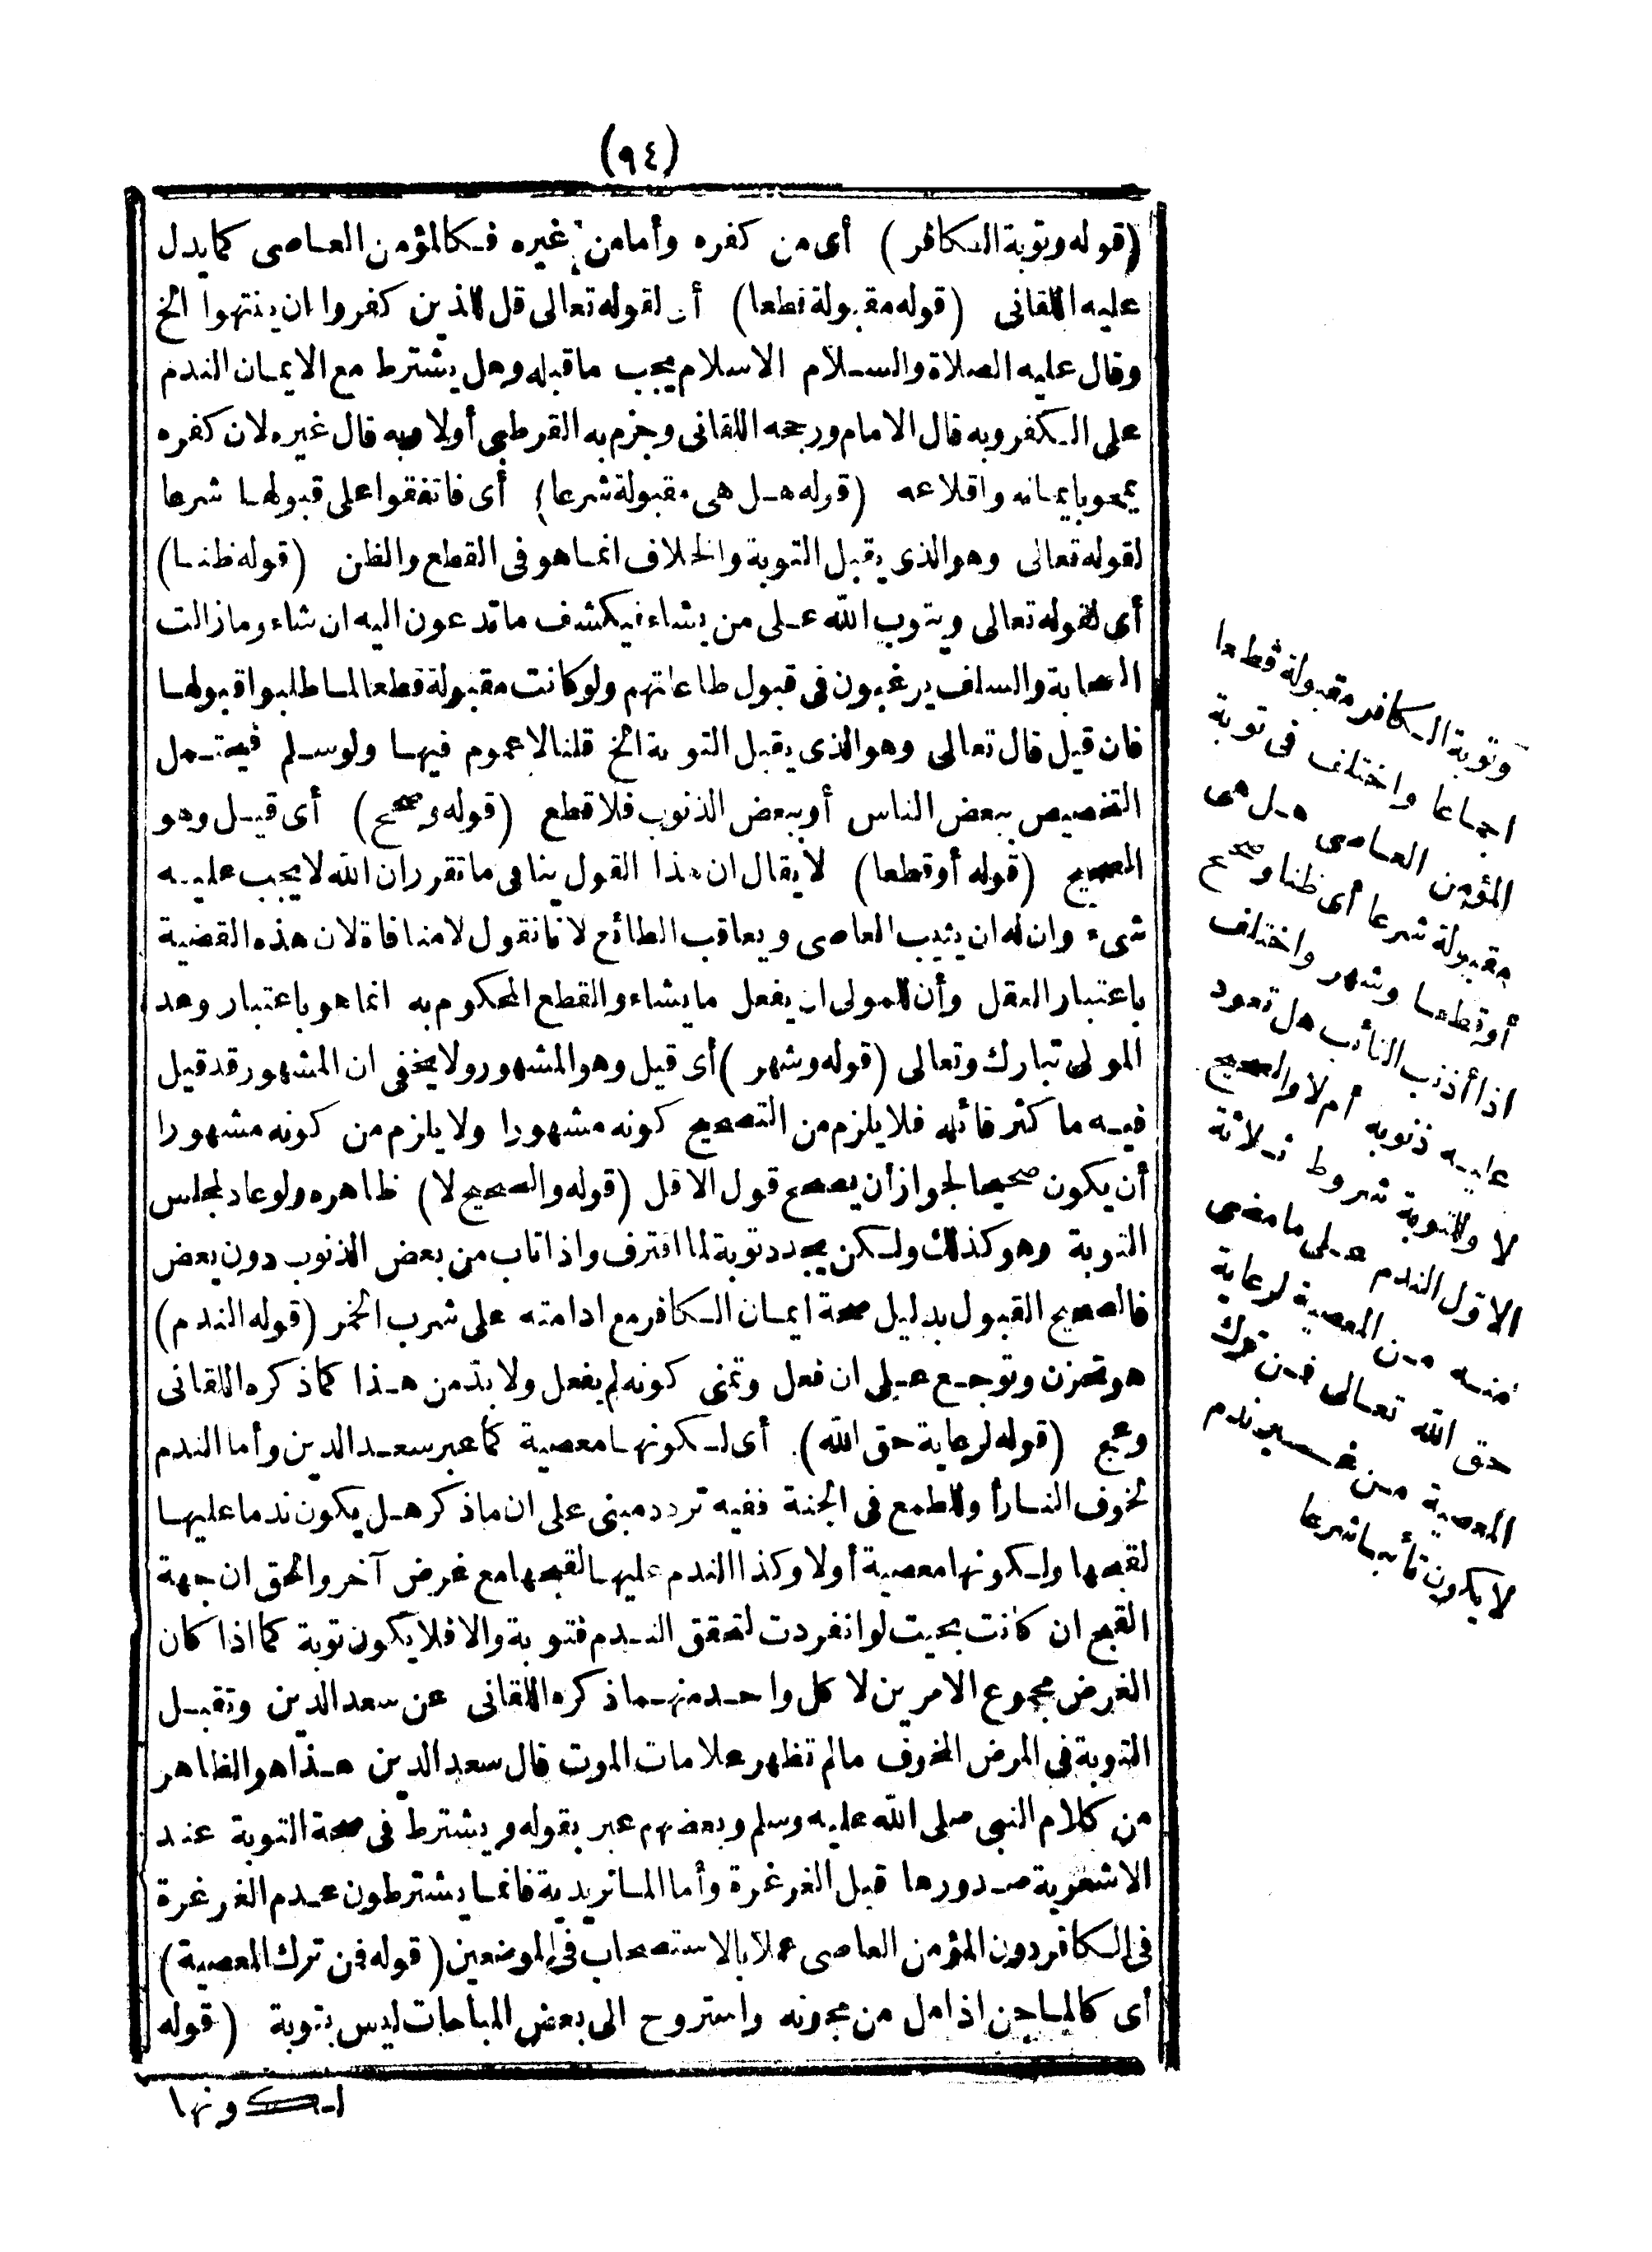 (٩٤)
(قوله وتوبة الكافر) أى من كفره وأما من غيره فكالمؤمن العاصى كما يدل
عليه اللقانى (قوله مقبولة قطعا) أى لقوله تعالى قل للذين كفروا ان ينتهوا الخ
وقال عليه الصلاة والسلام الاسلام يجب ما قبله وهل يشترط مع الايمان الندم
على الكفر وبه قال الامام ورجحه اللقانى وجزم به القرطبى أولا وبه قال غيره لان كفره
يمحو بايمانه واقلاعه (قوله هل هى مقبولة شرعا) أى فاتفقوا على قبولها شرعا
لقوله تعالى وهو الذى يقبل التوبة والخلاف انما هو فى القطع والظن (قوله ظنا)
أى لقوله تعالى ويتوب الله على من يشاء فيكشف ما تدعون اليه ان شاء وما زالت
الصحابة والسلف يرغبون فى قبول طاعاتهم ولو كانت مقبولة قطعا لما طلبوا قبولها
فان قيل قال تعالى وهو الذى يقبل التوبة الخ قلنا لا عموم فيها ولو سلم فيحتمل
التخصيص ببعض الناس أو ببعض الذنوب فلا قطع (قوله وصحح) أى قيل وهو
الصحيح (قوله أو قطعا) لا يقال ان هذا القول ينافى ما تقرر ان الله لا يجب عليه
شىء وان له ان يثيب العاصى ويعاقب الطائع لانا نقول لا منافاة لان هذه القضية
باعتبار العقل وأن للمولى ان يفعل ما يشاء والقطع المحكوم به انما هو باعتبار وعد
المولى تبارك وتعالى (قوله وشهر) أى قيل وهو المشهور ولا يخفى ان المشهور قد قيل
فيه ما كثر قائله فلا يلزم من التصحيح كونه مشهورا ولا يلزم من كونه مشهورا
أن يكون صحيحا لجواز أن يصحح قول الاقل (قوله والصحيح لا) ظاهره ولو عاد لمجلس
التوبة وهو كذلك ولكن يجدد توبة لما اقترف واذا تاب من بعض الذنوب دون بعض
فالصحيح القبول بدليل صحة ايمان الكافر مع ادامته على شرب الخمر (قوله الندم)
هو تحزن وتوجع على ان فعل وتمنى كونه لم يفعل ولا بد من هذا كما ذكره اللقانى
وعج (قوله لرعاية حق الله). أى لكونها معصية كما عبر سعد الدين وأما الندم
لخوف النار أو للطمع فى الجنة ففيه تردد مبنى على ان ما ذكر هل يكون ندما عليها
لقبحها ولكونها معصية أولا وكذا الندم عليها لقبحها مع غرض آخر والحق ان جهة
القبح ان كانت بحيث لو انفردت لتحقق الندم فتوبة والا فلا يكون توبة كما اذا كان
الغرض مجموع الامرين لا كل واحد منهما ذكره اللقانى عن سعد الدين وتقبل
التوبة فى المرض المخوف ما لم تظهر علامات الموت قال سعد الدين هذا هو الظاهر
من كلام النبى صلى الله عليه وسلم وبعضهم عبر بقوله ويشترط فى صحة التوبة عند
الاشعرية صدورها قبل الغرغرة وأما الماتريدية فانما يشترطون عدم الغرغرة
فى الكافر دون المؤمن العاصى عملا بالاستصحاب فى الموضعين (قوله فمن ترك المعصية)
أى كالماجن اذا مل من مجونه واستروح الى بعض المباحات ليس بتوبة (قوله
لكونها
وتوبة الكافر مقبولة قطعا
اجماعا واختلف فى توبة
المؤمن العاصى هل هى
مقبولة شرعا أى ظنا وصحح
أو قطعا وشهر واختلف
اذا أذنب التائب هل تعود
عليه ذنوبه أم لا والصحيح
لا وللتوبة شروط ثلاثة
الاول الندم على ما مضى
منه من المعصية لرعاية
حق الله تعالى فمن ترك
المعصية من غير ندم
لا يكون تائبا شرعا